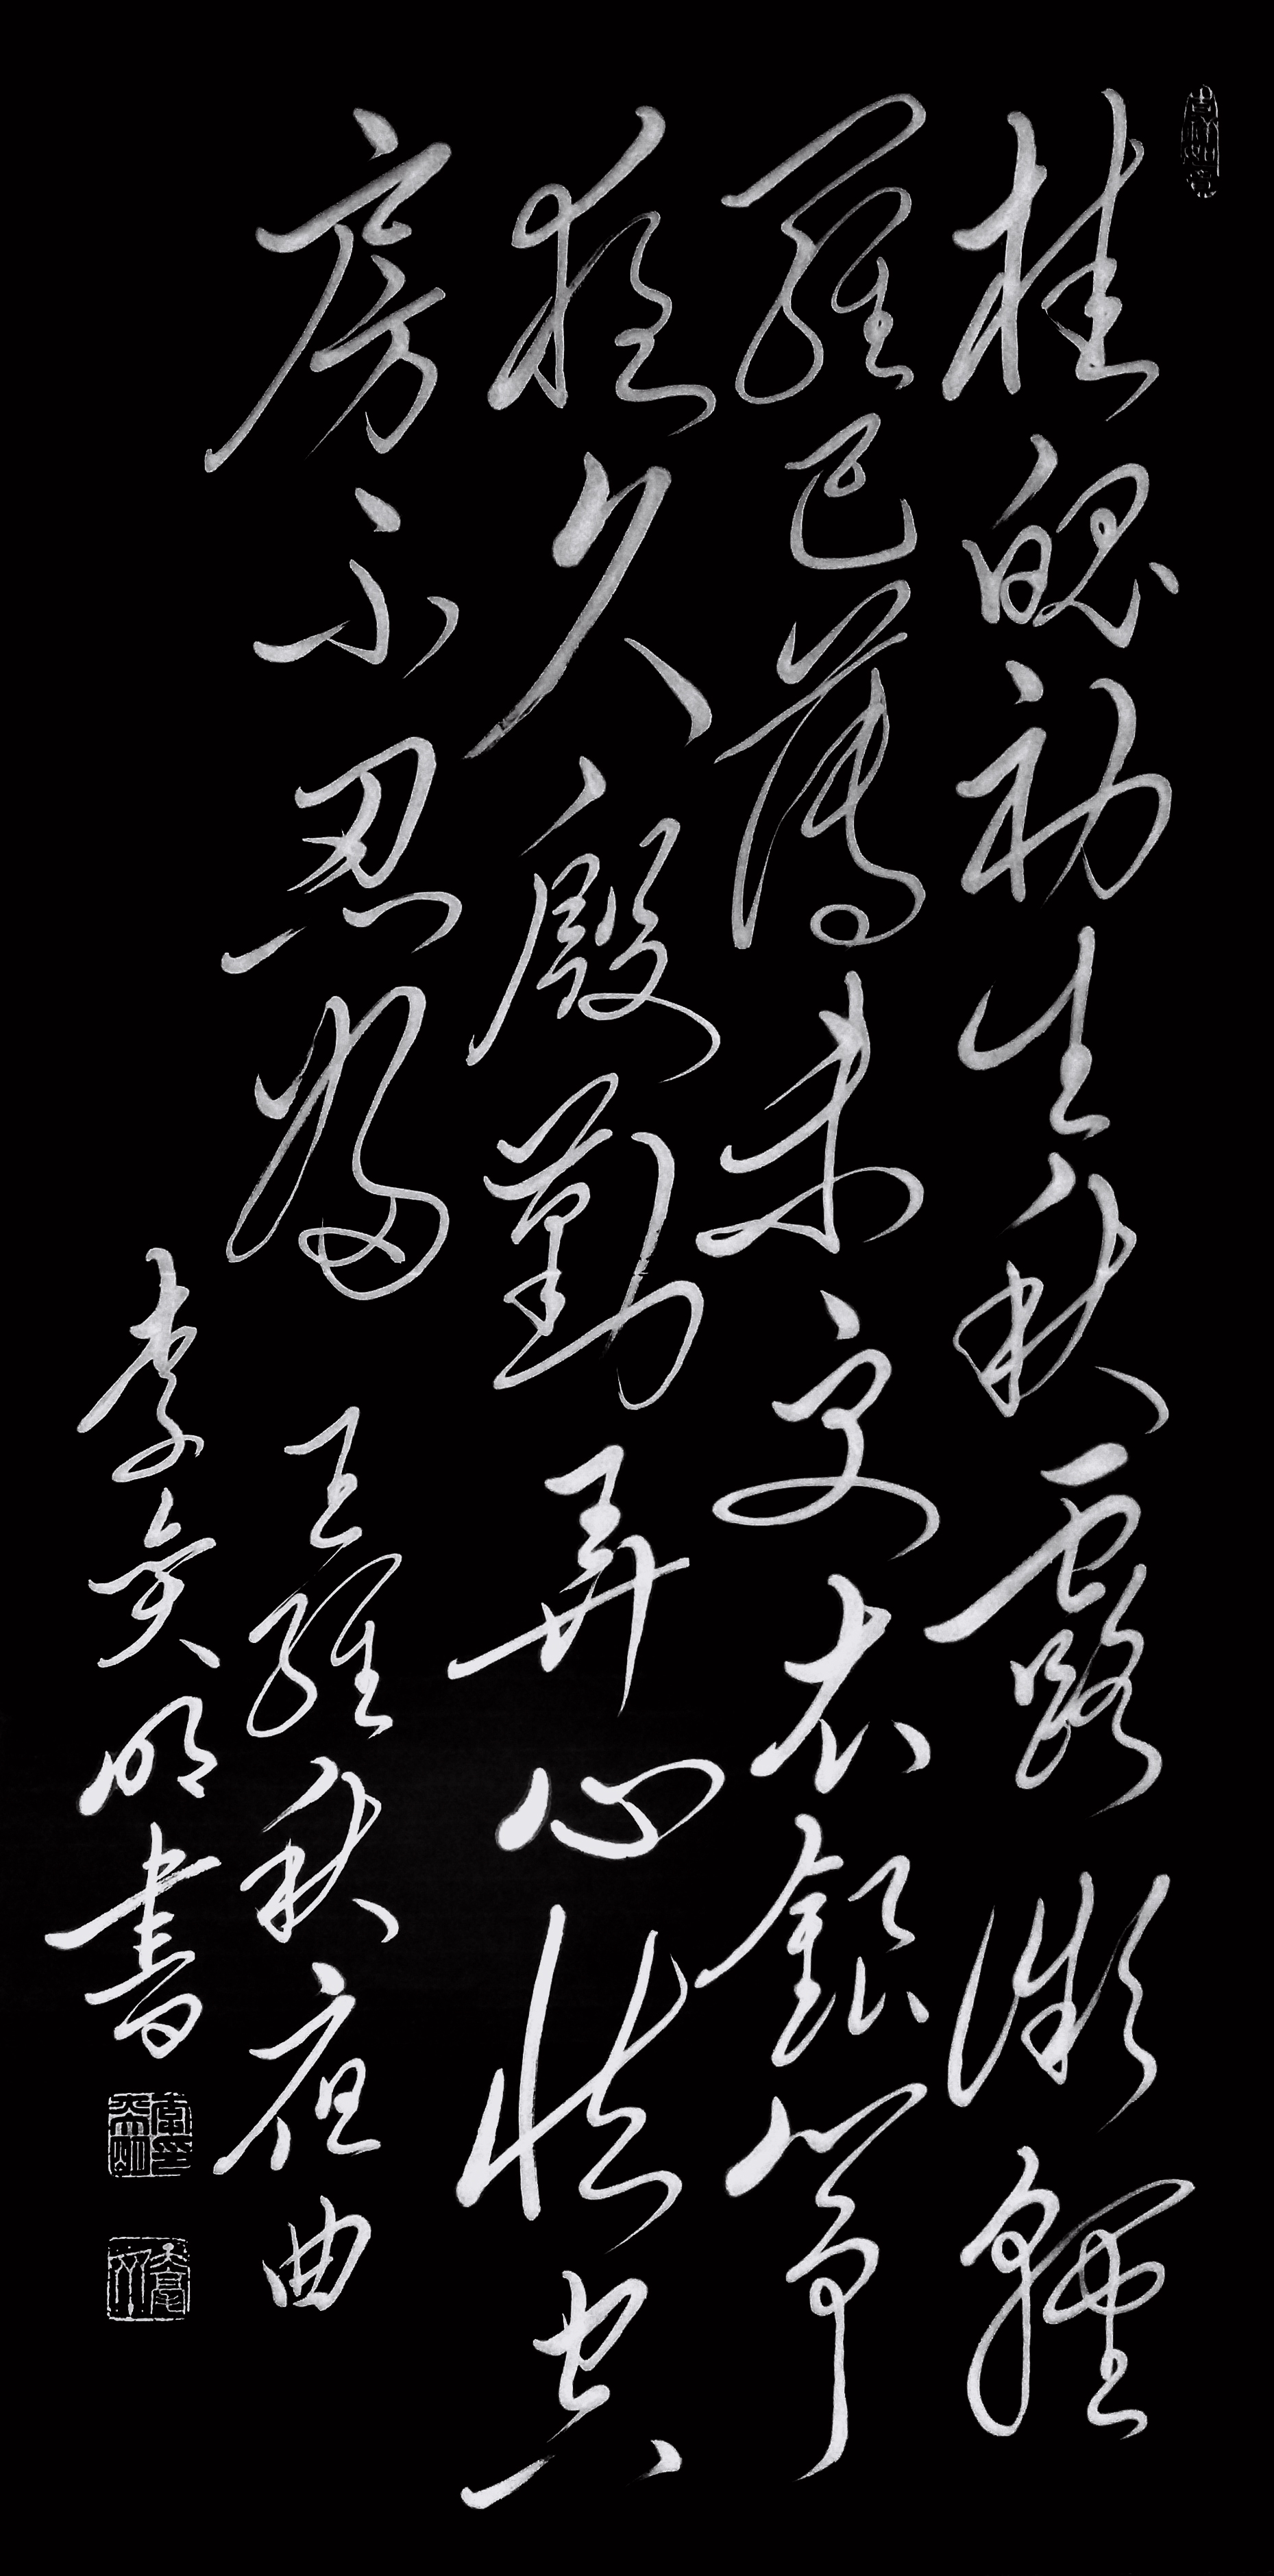 桂魄初生秋露微輕
羅已薄未更衣銀箏
夜久殷勤弄心怯空
房不忍歸 王維秋夜曲
李奕明書